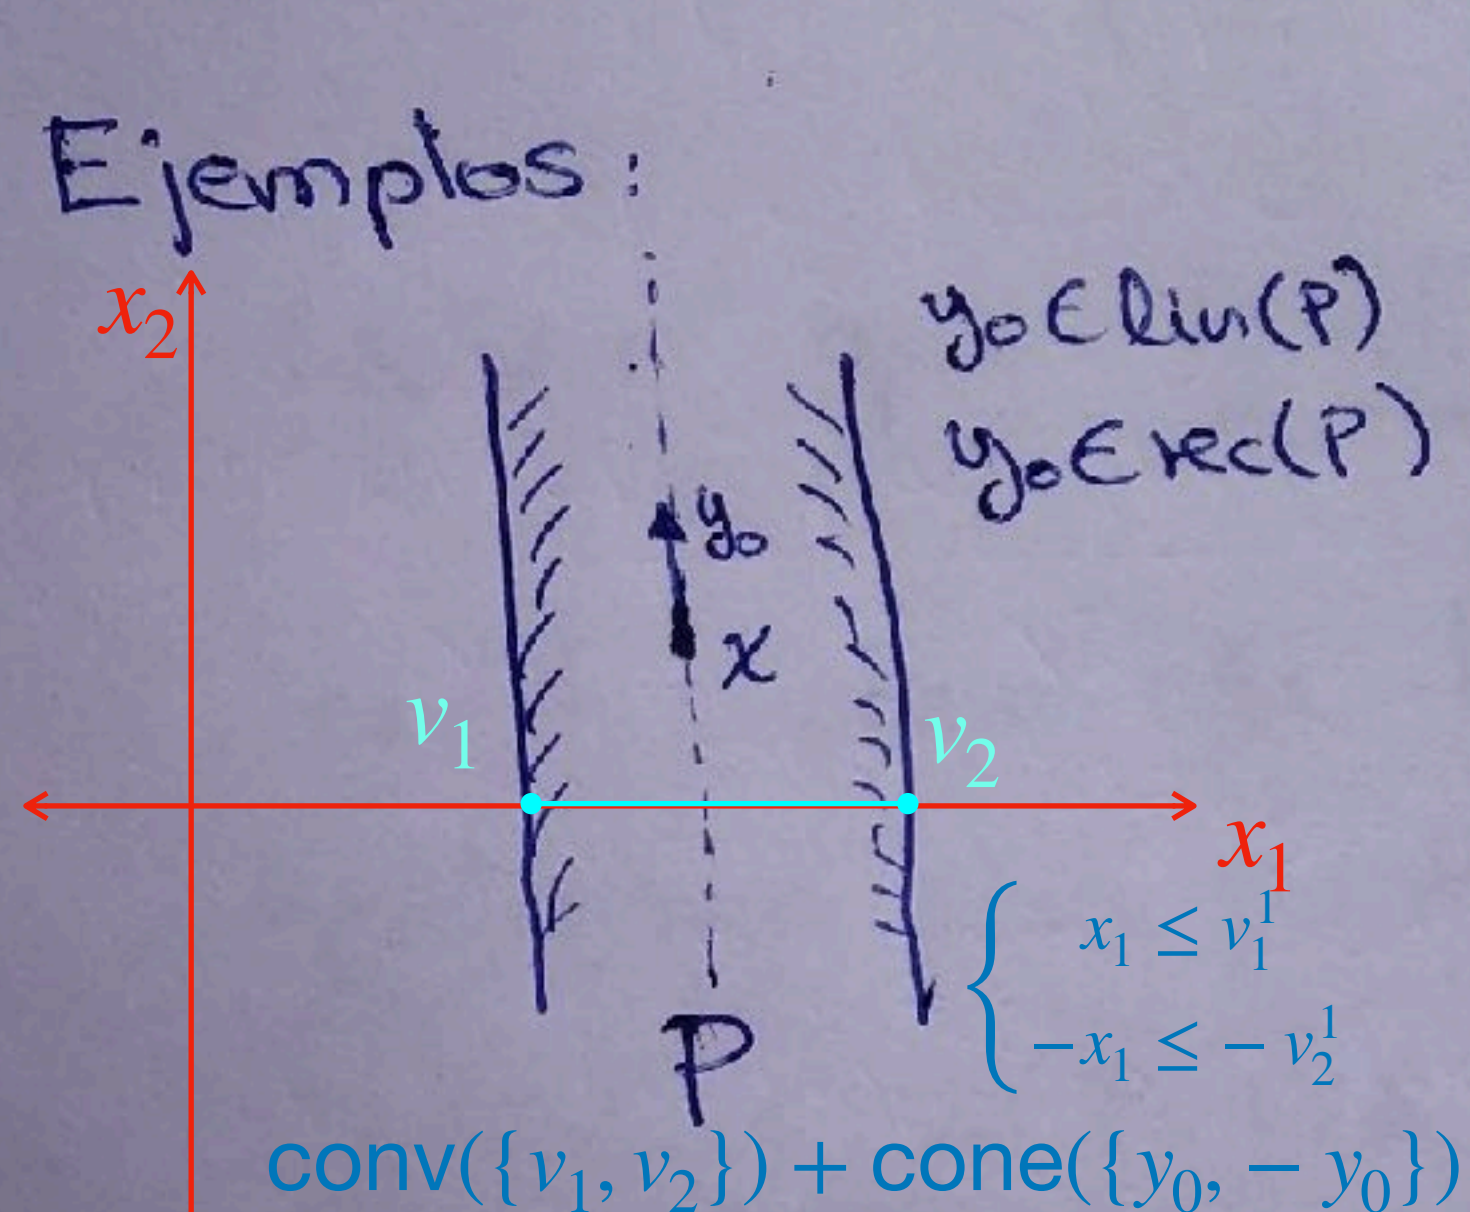 Ejemplos:
x₂
y₀ ∈ lin(P)
y₀ ∈ rec(P)
y₀
x
v₁
v₂
x₁
x₁ ≤ v₁¹
−x₁ ≤ − v₂¹
P
conv({v₁, v₂}) + cone({y₀, − y₀})